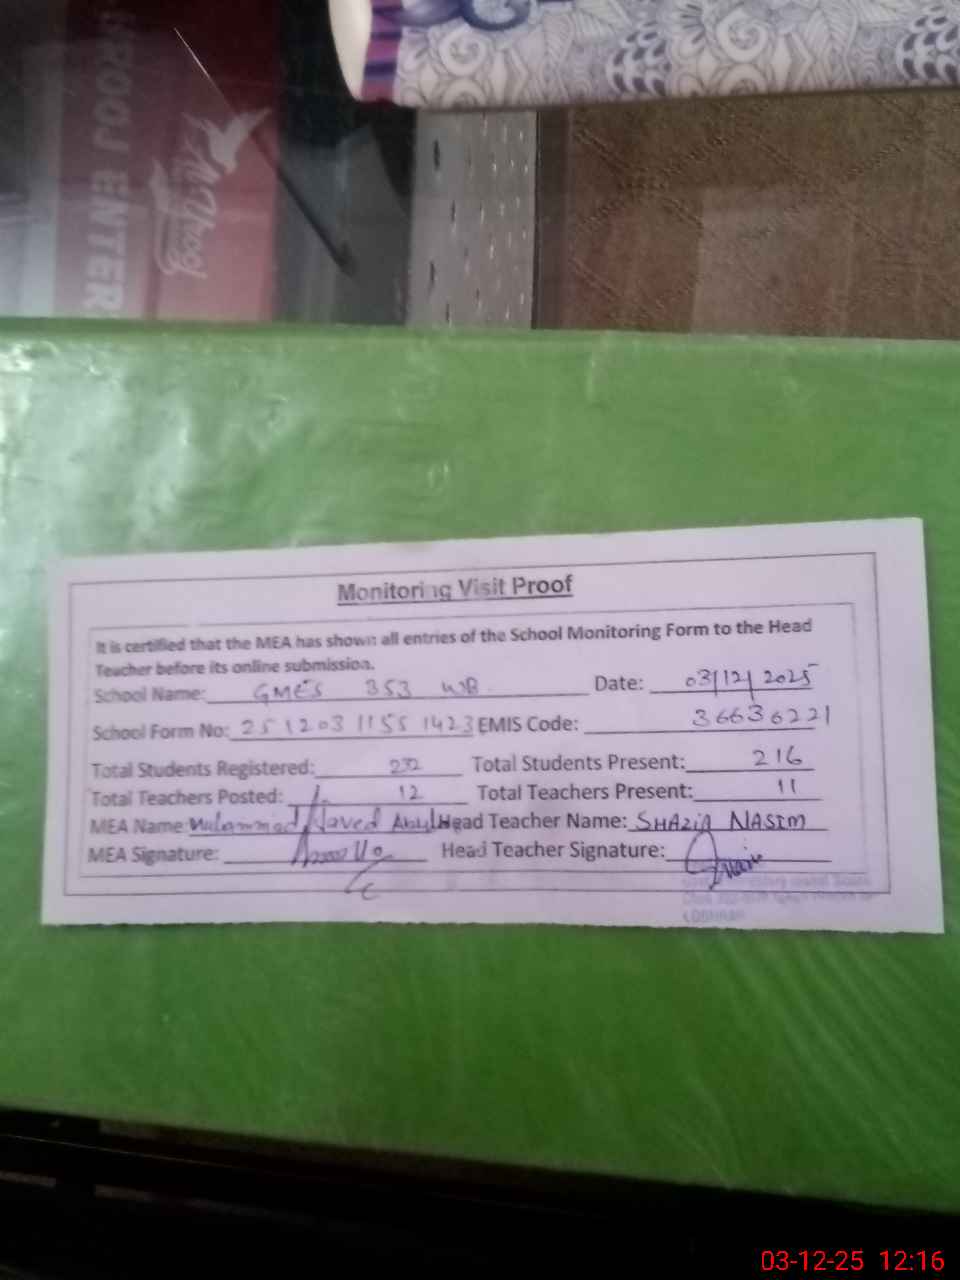 ROOJ ENTER
Monitoring Visit Proof
It is certified that the MEA has shown all entries of the School Monitoring Form to the Head
Teacher before its online submission.
School Name: GMES 353 WB Date: 03/12/2025
School Form No: 25120311551423 EMIS Code: 36636221
Total Students Registered: 232 Total Students Present: 216
Total Teachers Posted: 12 Total Teachers Present: 11
MEA Name: Muhammad Javed Head Teacher Name: SHAZIA NASIM
MEA Signature: Head Teacher Signature:
LODHRAN
03-12-25 12:16